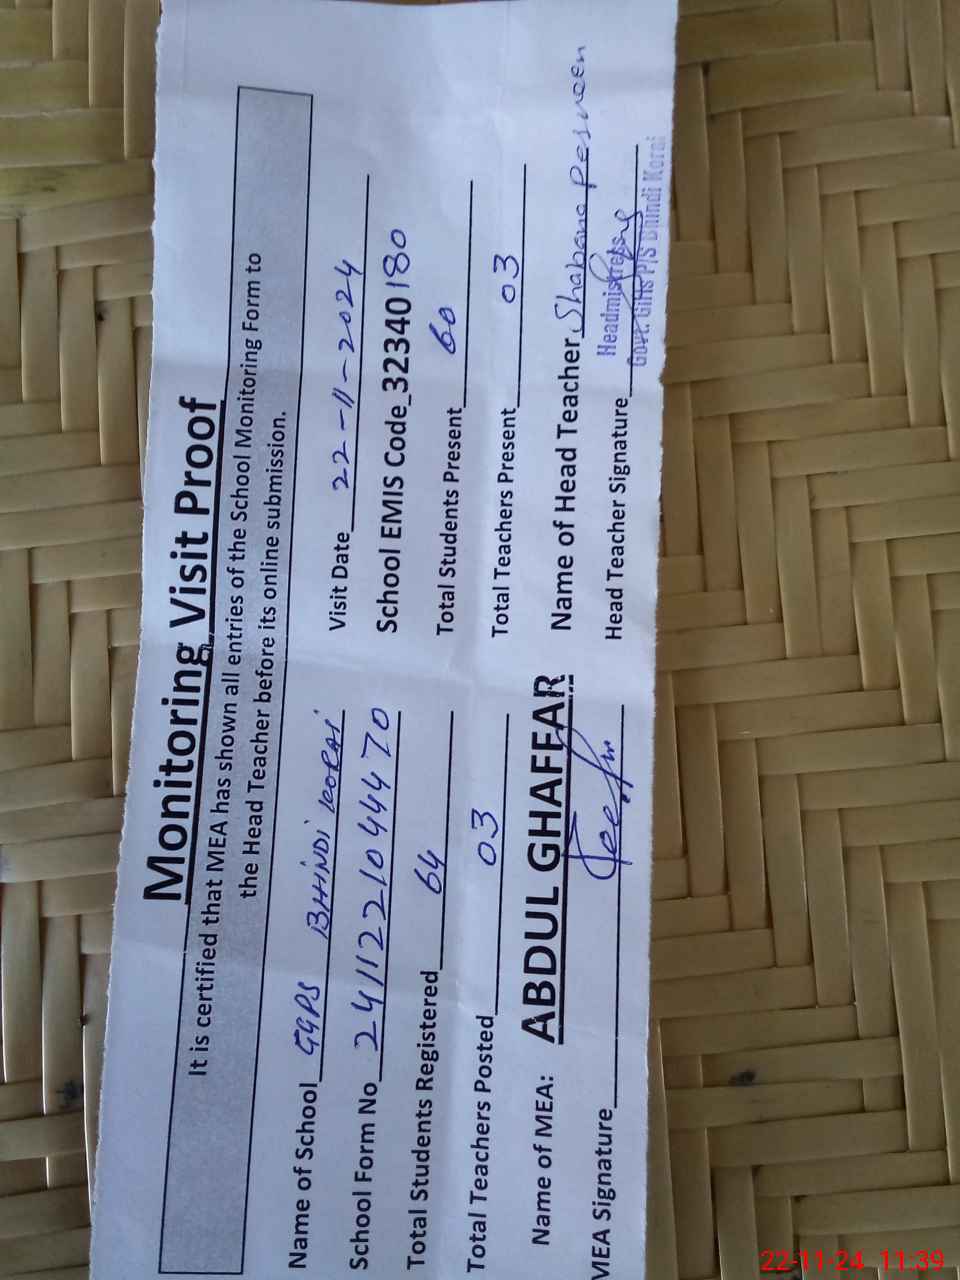 Monitoring Visit Proof
It is certified that MEA has shown all entries of the School Monitoring Form to
the Head Teacher before its online submission.
Name of School GGPS BHINDI KORAI Visit Date 22-11-2024
School Form No 2411221044470 School EMIS Code 32340180
Total Students Registered 64 Total Students Present 60
Total Teachers Posted 03 Total Teachers Present 03
Name of MEA: ABDUL GHAFFAR Name of Head Teacher Shabana Perveen
MEA Signature Head Teacher Signature
Headmistress
Govt. Girls P/S Bhindi Korai
22-11-24 11:39